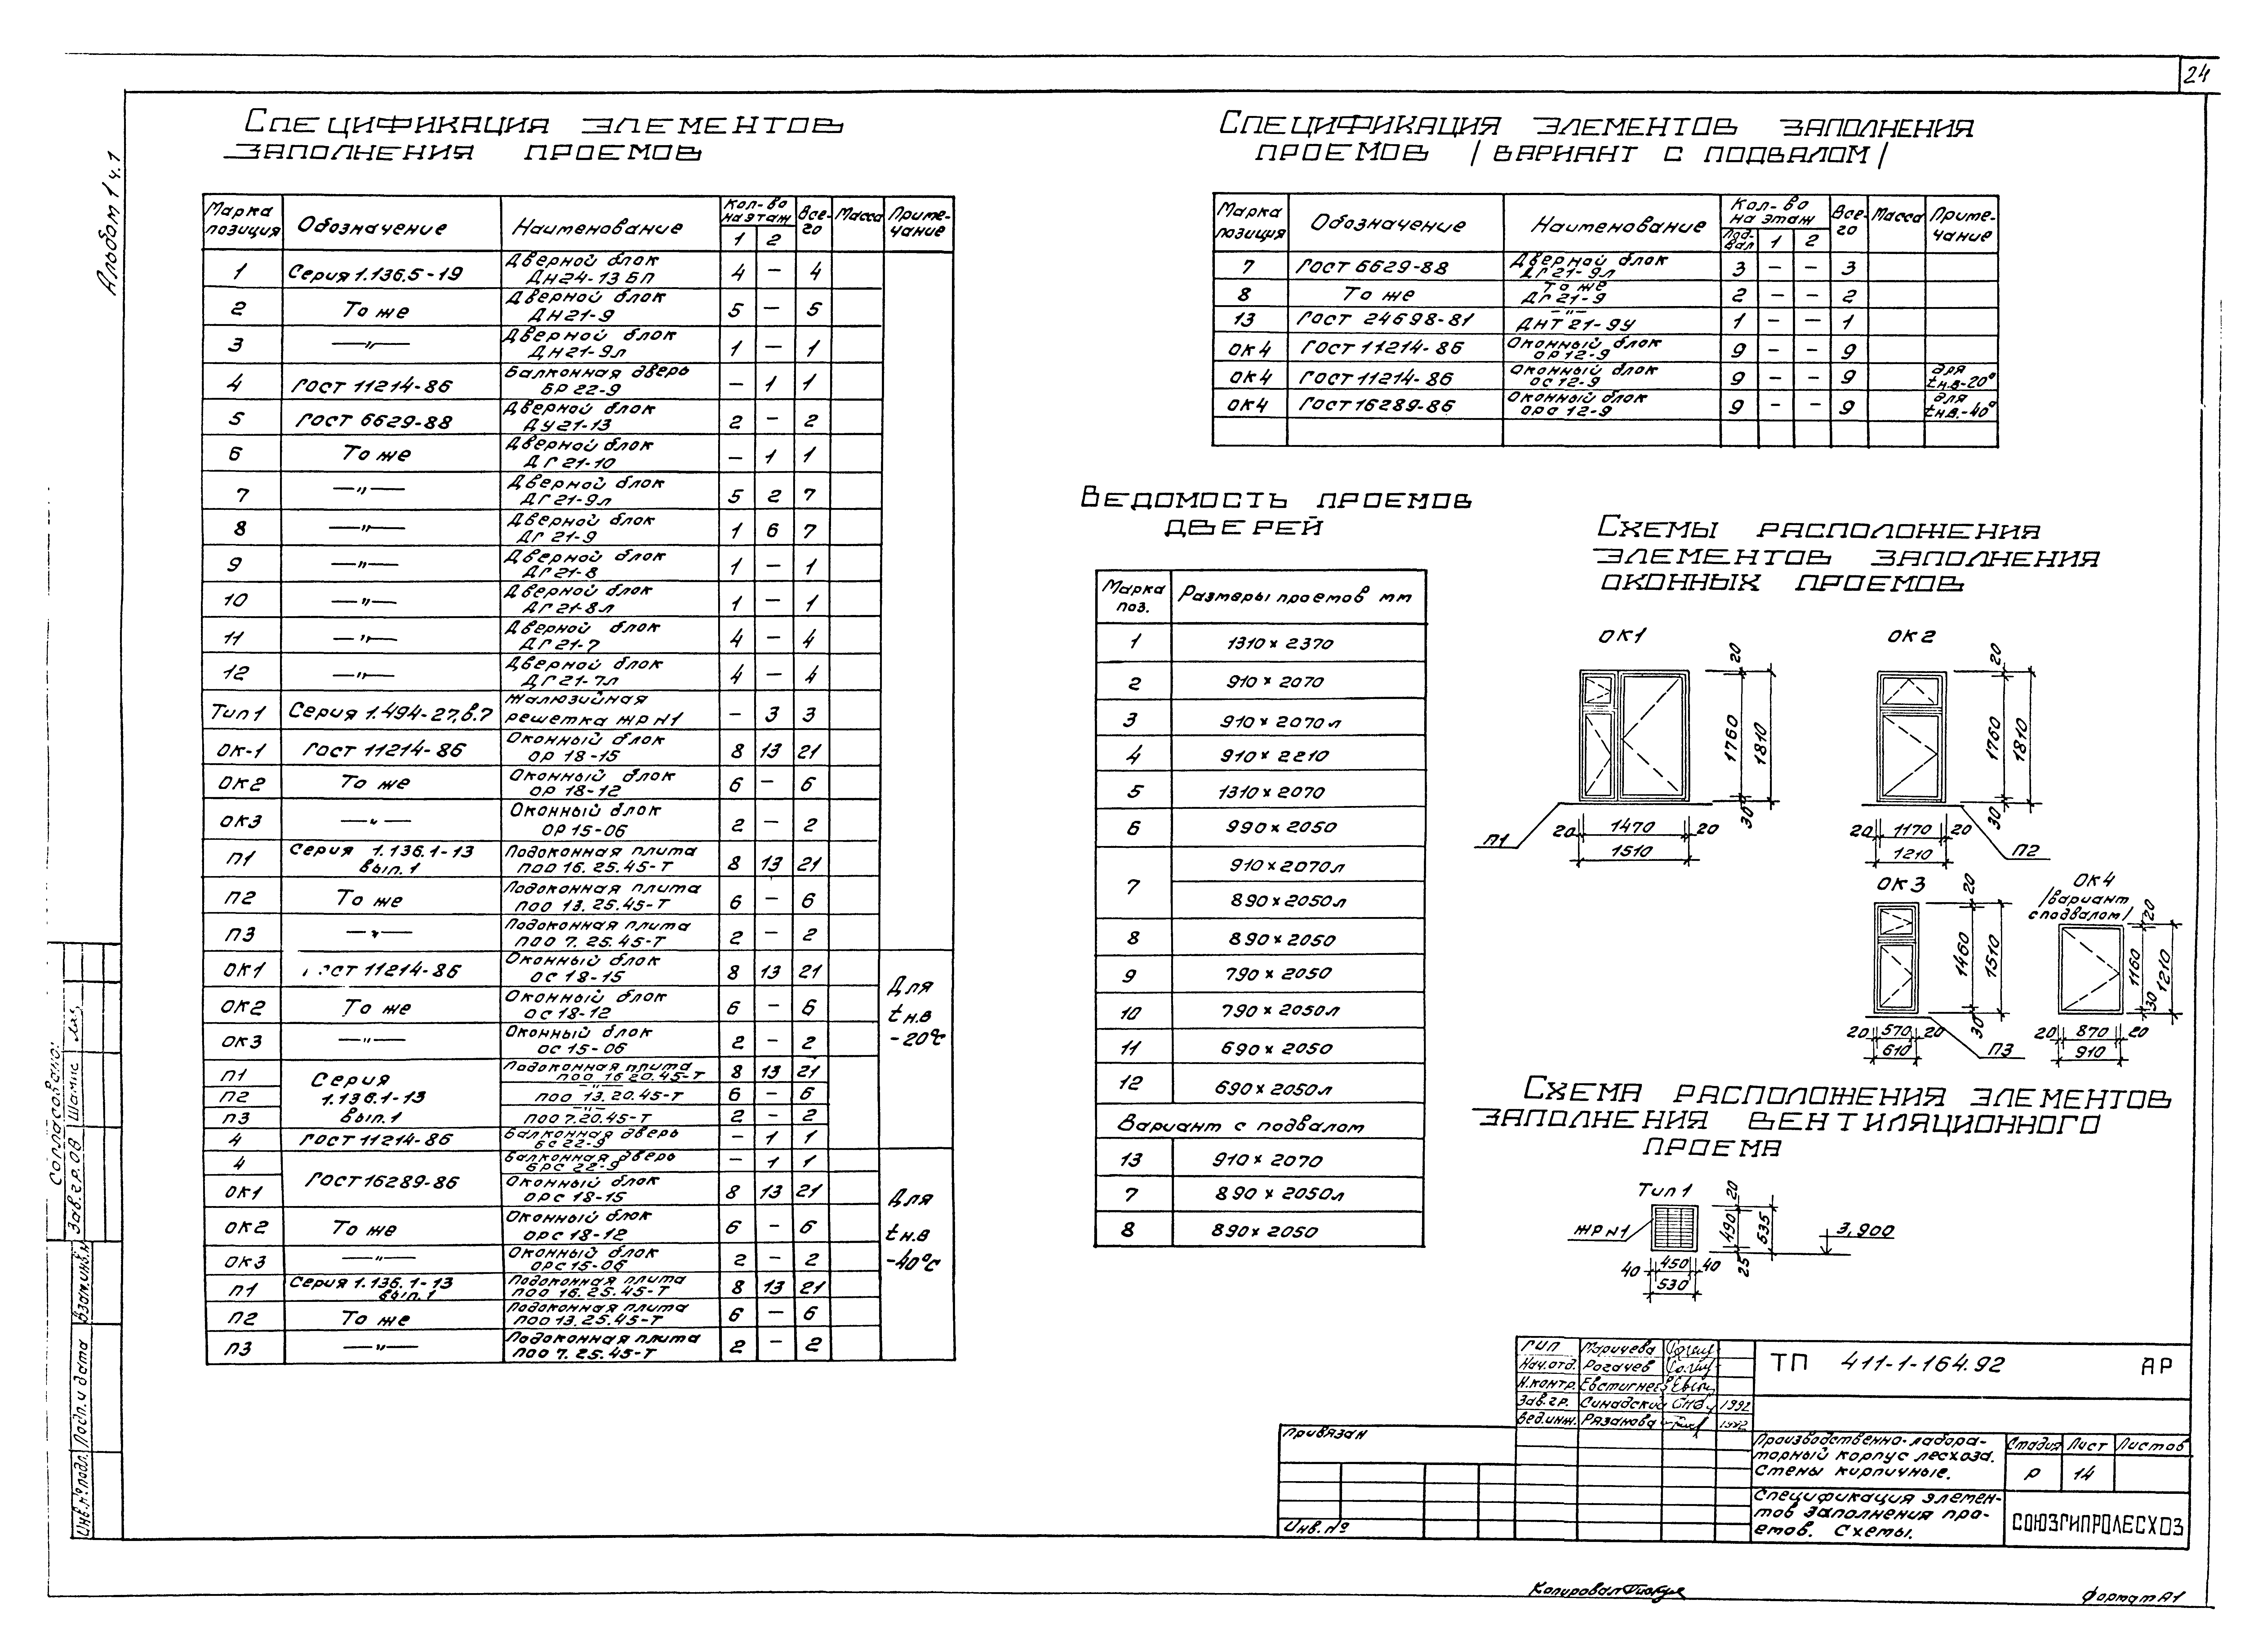 24
Альбом 1 ч.1
Спецификация элементов
заполнения проемов
Марка позиция | Обозначение | Наименование | Кол-во на этаж 1 | 2 | Всего | Масса | Примечание
1 | Серия 1.136.5-19 | Дверной блок ДН24-13БП | 4 | – | 4
2 | То же | Дверной блок ДН21-9 | 5 | – | 5
3 | —"— | Дверной блок ДН21-9л | 1 | – | 1
4 | ГОСТ 11214-86 | Балконная дверь БР 22-9 | – | 1 | 1
5 | ГОСТ 6629-88 | Дверной блок ДУ21-13 | 2 | – | 2
6 | То же | Дверной блок ДГ21-10 | – | 1 | 1
7 | —"— | Дверной блок ДГ21-9л | 5 | 2 | 7
8 | —"— | Дверной блок ДГ 21-9 | 1 | 6 | 7
9 | —"— | Дверной блок ДГ21-8 | 1 | – | 1
10 | —"— | Дверной блок ДГ21-8л | 1 | – | 1
11 | —"— | Дверной блок ДГ21-7 | 4 | – | 4
12 | —"— | Дверной блок ДГ21-7л | 4 | – | 4
Тип 1 | Серия 1.494-27, в.7 | Жалюзийная решетка ЖР №1 | – | 3 | 3
ОК-1 | ГОСТ 11214-86 | Оконный блок ОР 18-15 | 8 | 13 | 21
ОК2 | То же | Оконный блок ОР 18-12 | 6 | – | 6
ОК3 | —"— | Оконный блок ОР 15-06 | 2 | – | 2
П1 | Серия 1.136.1-13 вып.1 | Подоконная плита ПОО 16.25.45-Т | 8 | 13 | 21
П2 | То же | Подоконная плита ПОО 13.25.45-Т | 6 | – | 6
П3 | —"— | Подоконная плита ПОО 7.25.45-Т | 2 | – | 2
ОК1 | ГОСТ 11214-86 | Оконный блок ОС 18-15 | 8 | 13 | 21 | Для tн.в -20°С
ОК2 | То же | Оконный блок ОС 18-12 | 6 | – | 6
ОК3 | —"— | Оконный блок ОС 15-06 | 2 | – | 2
П1 | Серия 1.136.1-13 вып.1 | Подоконная плита ПОО 16.20.45-Т | 8 | 13 | 21
П2 | —"— ПОО 13.20.45-Т | 6 | – | 6
П3 | —"— ПОО 7.20.45-Т | 2 | – | 2
4 | ГОСТ 11214-86 | Балконная дверь БС 22-9 | – | 1 | 1
4 | ГОСТ 16289-86 | Балконная дверь БРС 22-9 | – | 1 | 1 | Для tн.в -40°С
ОК1 | Оконный блок ОРС 18-15 | 8 | 13 | 21
ОК2 | То же | Оконный блок ОРС 18-12 | 6 | – | 6
ОК3 | —"— | Оконный блок ОРС 15-06 | 2 | – | 2
П1 | Серия 1.136.1-13 вып.1 | Подоконная плита ПОО 16.25.45-Т | 8 | 13 | 21
П2 | То же | Подоконная плита ПОО 13.25.45-Т | 6 | – | 6
П3 | —"— | Подоконная плита ПОО 7.25.45-Т | 2 | – | 2
Спецификация элементов заполнения
проемов /вариант с подвалом/
Марка позиция | Обозначение | Наименование | Кол-во на этаж Подвал | 1 | 2 | Всего | Масса | Примечание
7 | ГОСТ 6629-88 | Дверной блок ДГ21-9л | 3 | – | – | 3
8 | То же | То же ДГ 21-9 | 2 | – | – | 2
13 | ГОСТ 24698-81 | —"— ДНТ 21-9У | 1 | – | – | 1
ОК4 | ГОСТ 11214-86 | Оконный блок ОР12-9 | 9 | – | – | 9
ОК4 | ГОСТ 11214-86 | Оконный блок ОС 12-9 | 9 | – | – | 9 | для tн.в-20°
ОК4 | ГОСТ 16289-86 | Оконный блок ОРС 12-9 | 9 | – | – | 9 | для tн.в.-40°
Ведомость проемов
дверей
Марка поз. | Размеры проемов мм
1 | 1310 х 2370
2 | 910 х 2070
3 | 910 х 2070л
4 | 910 х 2210
5 | 1310 х 2070
6 | 990 х 2050
7 | 910 х 2070л
890 х 2050л
8 | 890 х 2050
9 | 790 х 2050
10 | 790 х 2050л
11 | 690 х 2050
12 | 690 х 2050л
Вариант с подвалом
13 | 910 х 2070
7 | 890 х 2050л
8 | 890 х 2050
Схемы расположения
элементов заполнения
оконных проемов
ОК1
20 1760 30 1810
20 1470 20
1510
П1
ОК2
20 1760 30 1810
20 1170 20
1210
П2
ОК3
20 1460 30 1510
20 570 20
610
П3
ОК4
/вариант
с подвалом/
20 1160 30 1210
20 870 20
910
Схема расположения элементов
заполнения вентиляционного
проема
Тип 1
ЖР №1
20 490 25 535
3,900
40 450 40
530
ГИП Маричева
Нач.отд. Рогачев
Н.контр. Евстигнеев
Зав.гр. Синадский 1992
Вед.инж. Рязанова 1992
ТП 411-1-164.92 АР
Производственно-лабора-
торный корпус лесхоза.
Стены кирпичные.
Стадия Лист Листов
Р 14
Спецификация элемен-
тов заполнения про-
емов. Схемы.
СОЮЗГИПРОЛЕСХОЗ
Привязан
Инв. №
Согласовано:
Зав.гр.ОВ Шамис
Взам.инв.№
Подп. и дата
Инв.№ подл.
Копировал
Формат А1